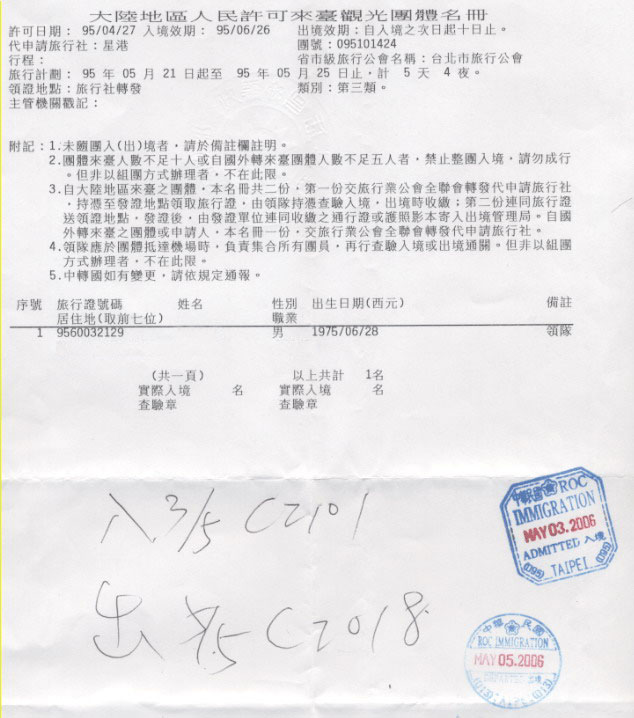 大陸地區人民許可來臺觀光團體名冊
許可日期： 95/04/27 入境效期： 95/06/26 出境效期：自入境之次日起十日止。
代申請旅行社：星港 團號：095101424
行程： 省市級旅行公會名稱：台北市旅行公會
旅行計劃： 95 年 05 月 21 日起至 95 年 05 月 25 日止，計 5 天 4 夜。
領證地點：旅行社轉發 類別：第三類。
主管機關戳記：
附記：1.未隨團入(出)境者，請於備註欄註明。
2.團體來臺人數不足十人或自國外轉來臺團體人數不足五人者，禁止整團入境，請勿成行
。但非以組團方式辦理者，不在此限。
3.自大陸地區來臺之團體，本名冊共二份，第一份交旅行業公會全聯會轉發代申請旅行社
，持憑至發證地點領取旅行證，由領隊持憑查驗入境，出境時收繳；第二份連同旅行證
送領證地點，發證後，由發證單位連同收繳之通行證或護照影本寄入出境管理局。自國
外轉來臺之團體或申請人，本名冊一份，交旅行業公會全聯會轉發代申請旅行社。
4.領隊應於團體抵達機場時，負責集合所有團員，再行查驗入境或出境通關。但非以組團
方式辦理者，不在此限。
5.中轉國如有變更，請依規定通報。
序號 旅行證號碼 姓名 性別 出生日期(西元) 備註
居住地(取前七位) 職業
1 9560032129 男 1975/06/28 領隊
(共一頁) 以上共計 1名
實際入境 名 實際入境 名
查驗章 查驗章
入 3/5 CZ101
出 5/5 CZ018
中華民國 ROC
IMMIGRATION
MAY 03.2006
ADMITTED 入境
(095) TAIPEI (095)
中華民國
ROC IMMIGRATION
MAY 05.2006